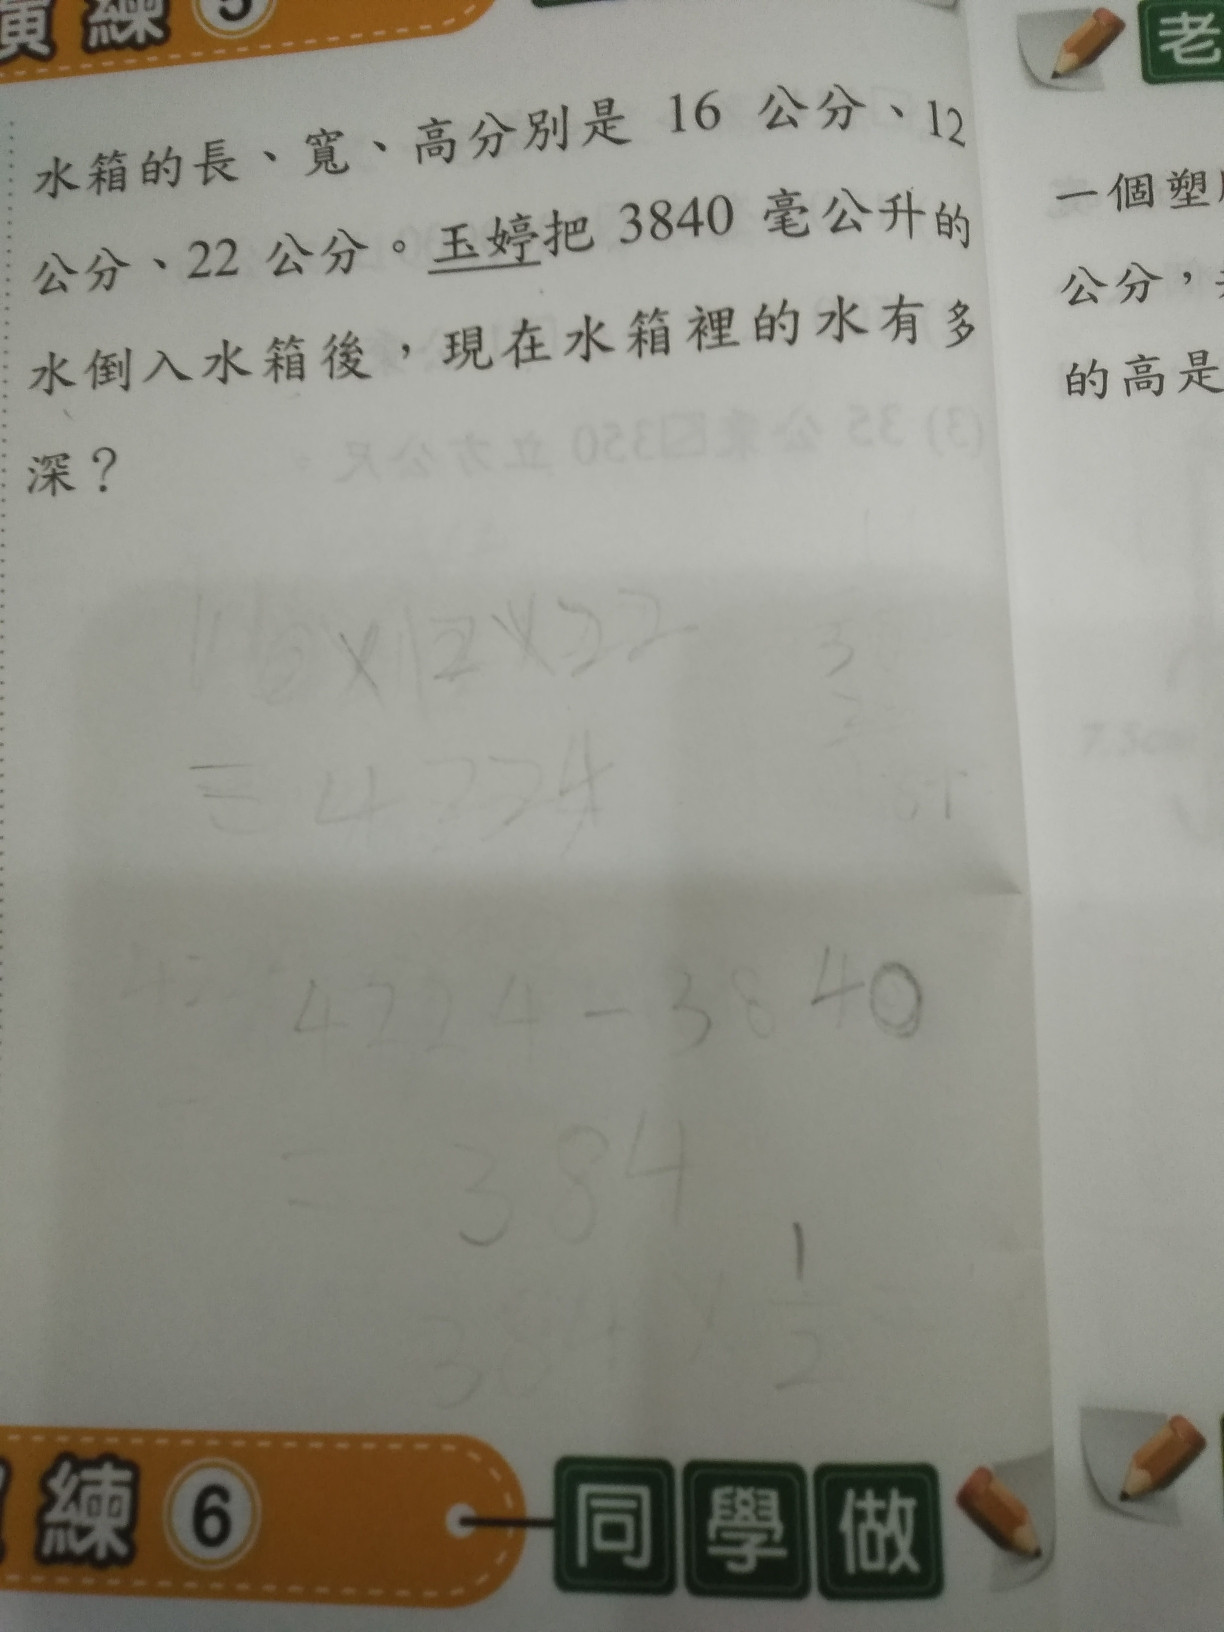 演練 5
水箱的長、寬、高分別是 16 公分、12
公分、22 公分。玉婷把 3840 毫公升的
水倒入水箱後，現在水箱裡的水有多
深？
16×12×22
=4224
4224-3840
=384
384×1/2
練 6 同學做
老
一個塑
公分，
的高是